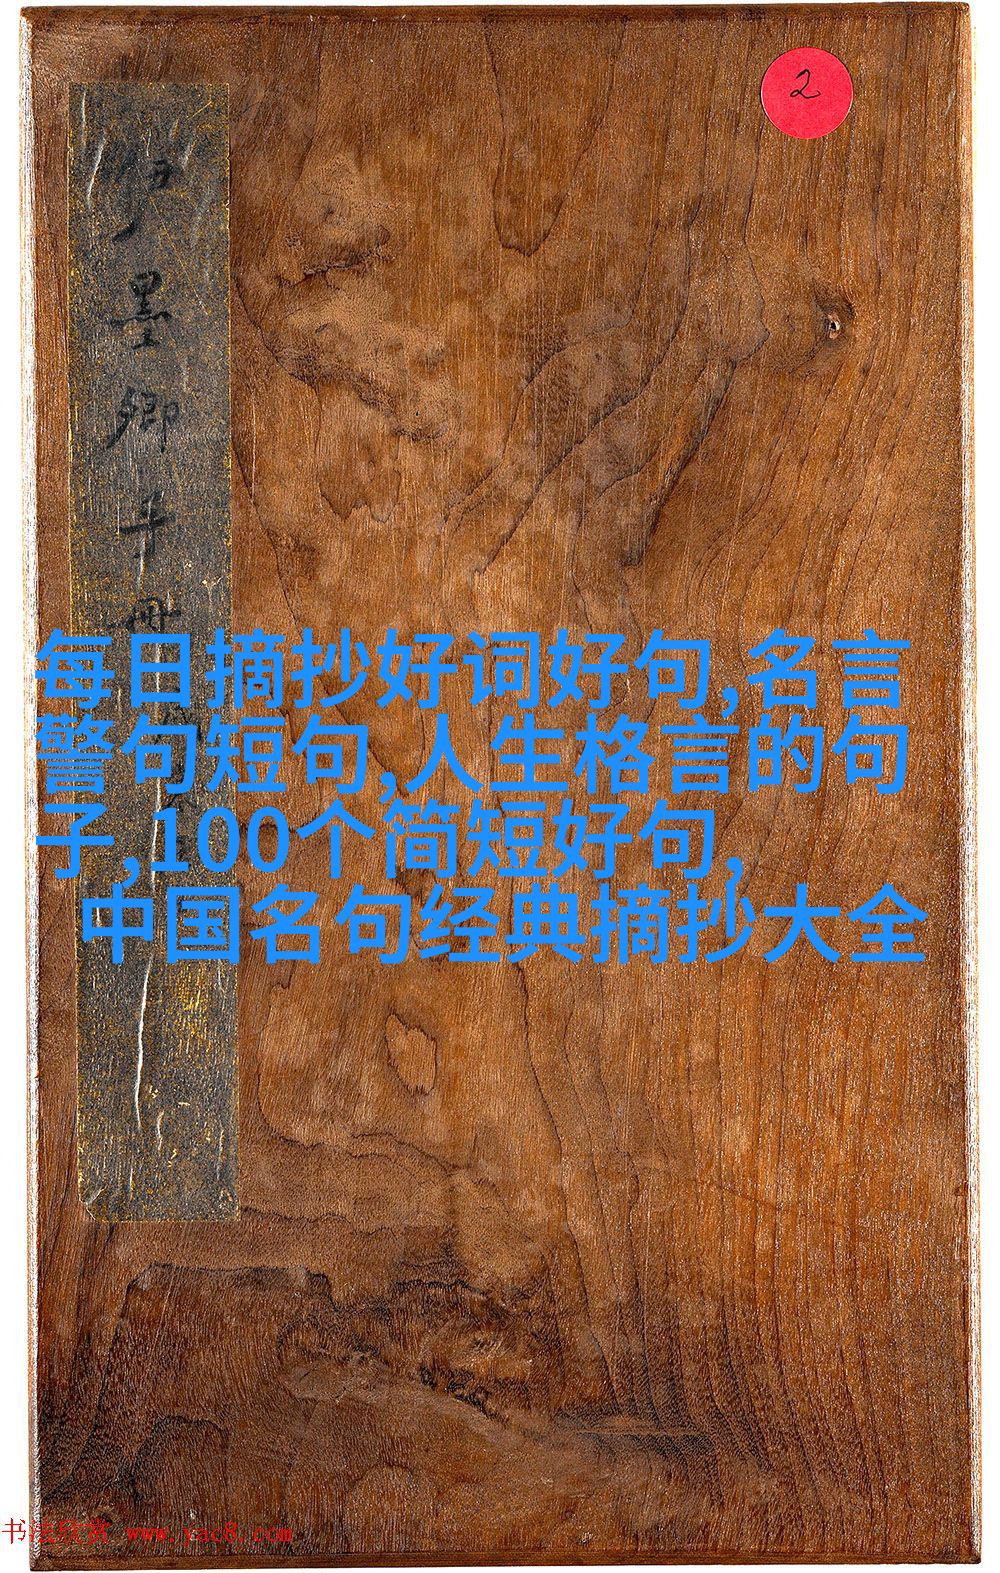 2
墨卿手冊
每日摘抄好词好句,名言
警句短句,人生格言的句
子,100个简短好句,
中国名句经典摘抄大全
书法欣赏 www.yac8.com